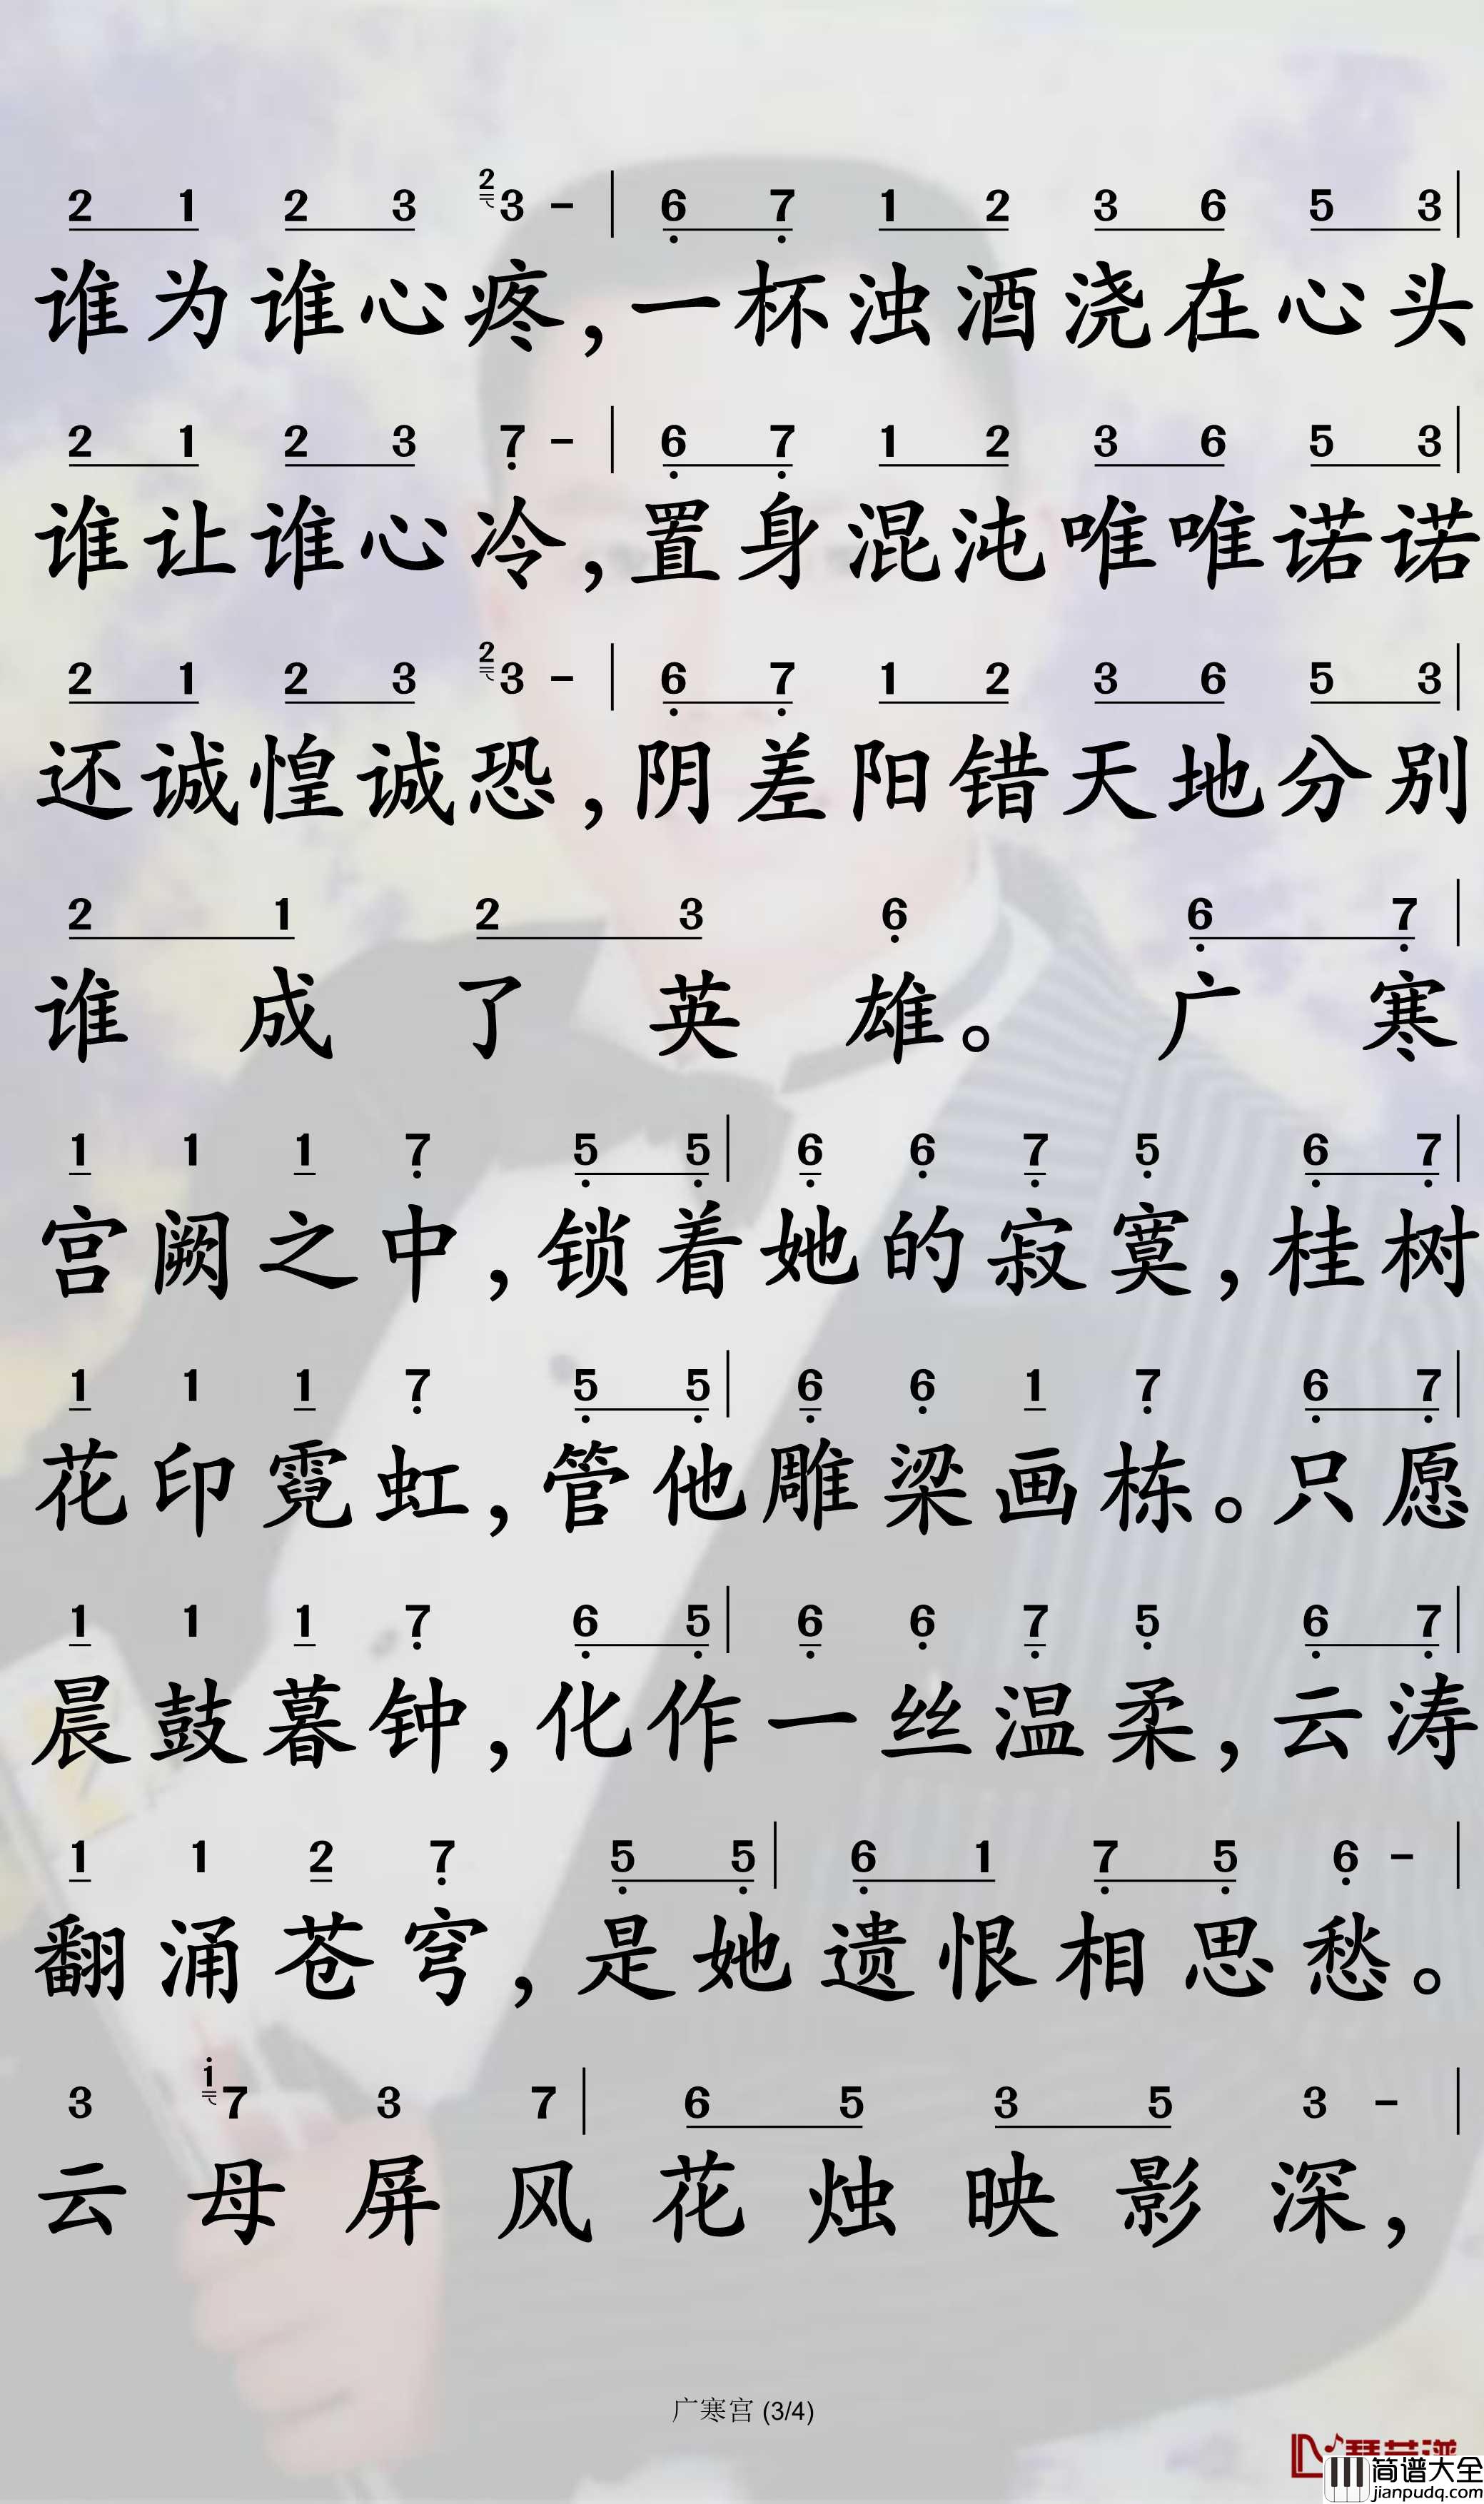 2 1 2 3 2 3 - | 6 7 1 2 3 6 5 3 |
谁为谁心疼，一杯浊酒浇在心头
2 1 2 3 7 - | 6 7 1 2 3 6 5 3 |
谁让谁心冷，置身混沌唯唯诺诺
2 1 2 3 2 3 - | 6 7 1 2 3 6 5 3 |
还诚惶诚恐，阴差阳错天地分别
2 1 2 3 6 6 7 |
谁成了英雄。广寒
1 1 1 7 5 5 | 6 6 7 5 6 7 |
宫阙之中，锁着她的寂寞，桂树
1 1 1 7 5 5 | 6 6 1 7 6 7 |
花印霓虹，管他雕梁画栋。只愿
1 1 1 7 6 5 | 6 6 7 5 6 7 |
晨鼓暮钟，化作一丝温柔，云涛
1 1 2 7 5 5 | 6 1 7 5 6 - |
翻涌苍穹，是她遗恨相思愁。
3 1 7 3 7 | 6 5 3 5 3 - |
云母屏风花烛映影深，
广寒宫 (3/4)
简谱大全
jianpudq.com